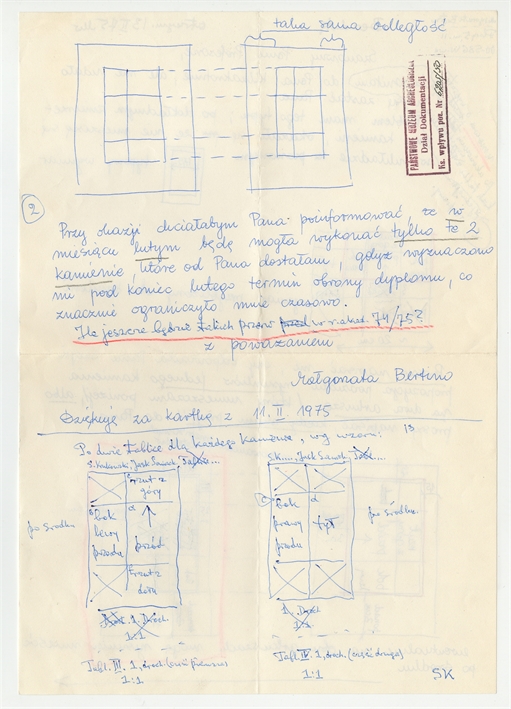 taka sama odległość
PAŃSTWOWE MUZEUM ARCHEOLOGICZNE
Dział Dokumentacji
Ks. wpływu poz. Nr
2
Przy okazji chciałabym Pana poinformować, że w
miesiącu lutym będę mogła wykonać tylko te 2
kamienie, które od Pana dostałam, gdyż wyznaczono
mi pod koniec lutego termin obrony dyplomu, co
znacznie ograniczyło mnie czasowo.
Ile jeszcze będzie takich w r. akad. 74/75?
z poważaniem
Małgorzata Bertino
Dziękuję za kartkę z 11.II 1975
Po dwie tablice dla każdego kamienia, wg wzoru: 13
po środku
Front z
góry
bok
lewy
przodu
przód
Front z
dołu
1:1
Tabl. III. 1, (część pierwsza)
1:1
bok
prawy
przodu
d
tył
po środku
1:1
Tabl. IV. 1, (część druga)
1:1
SK